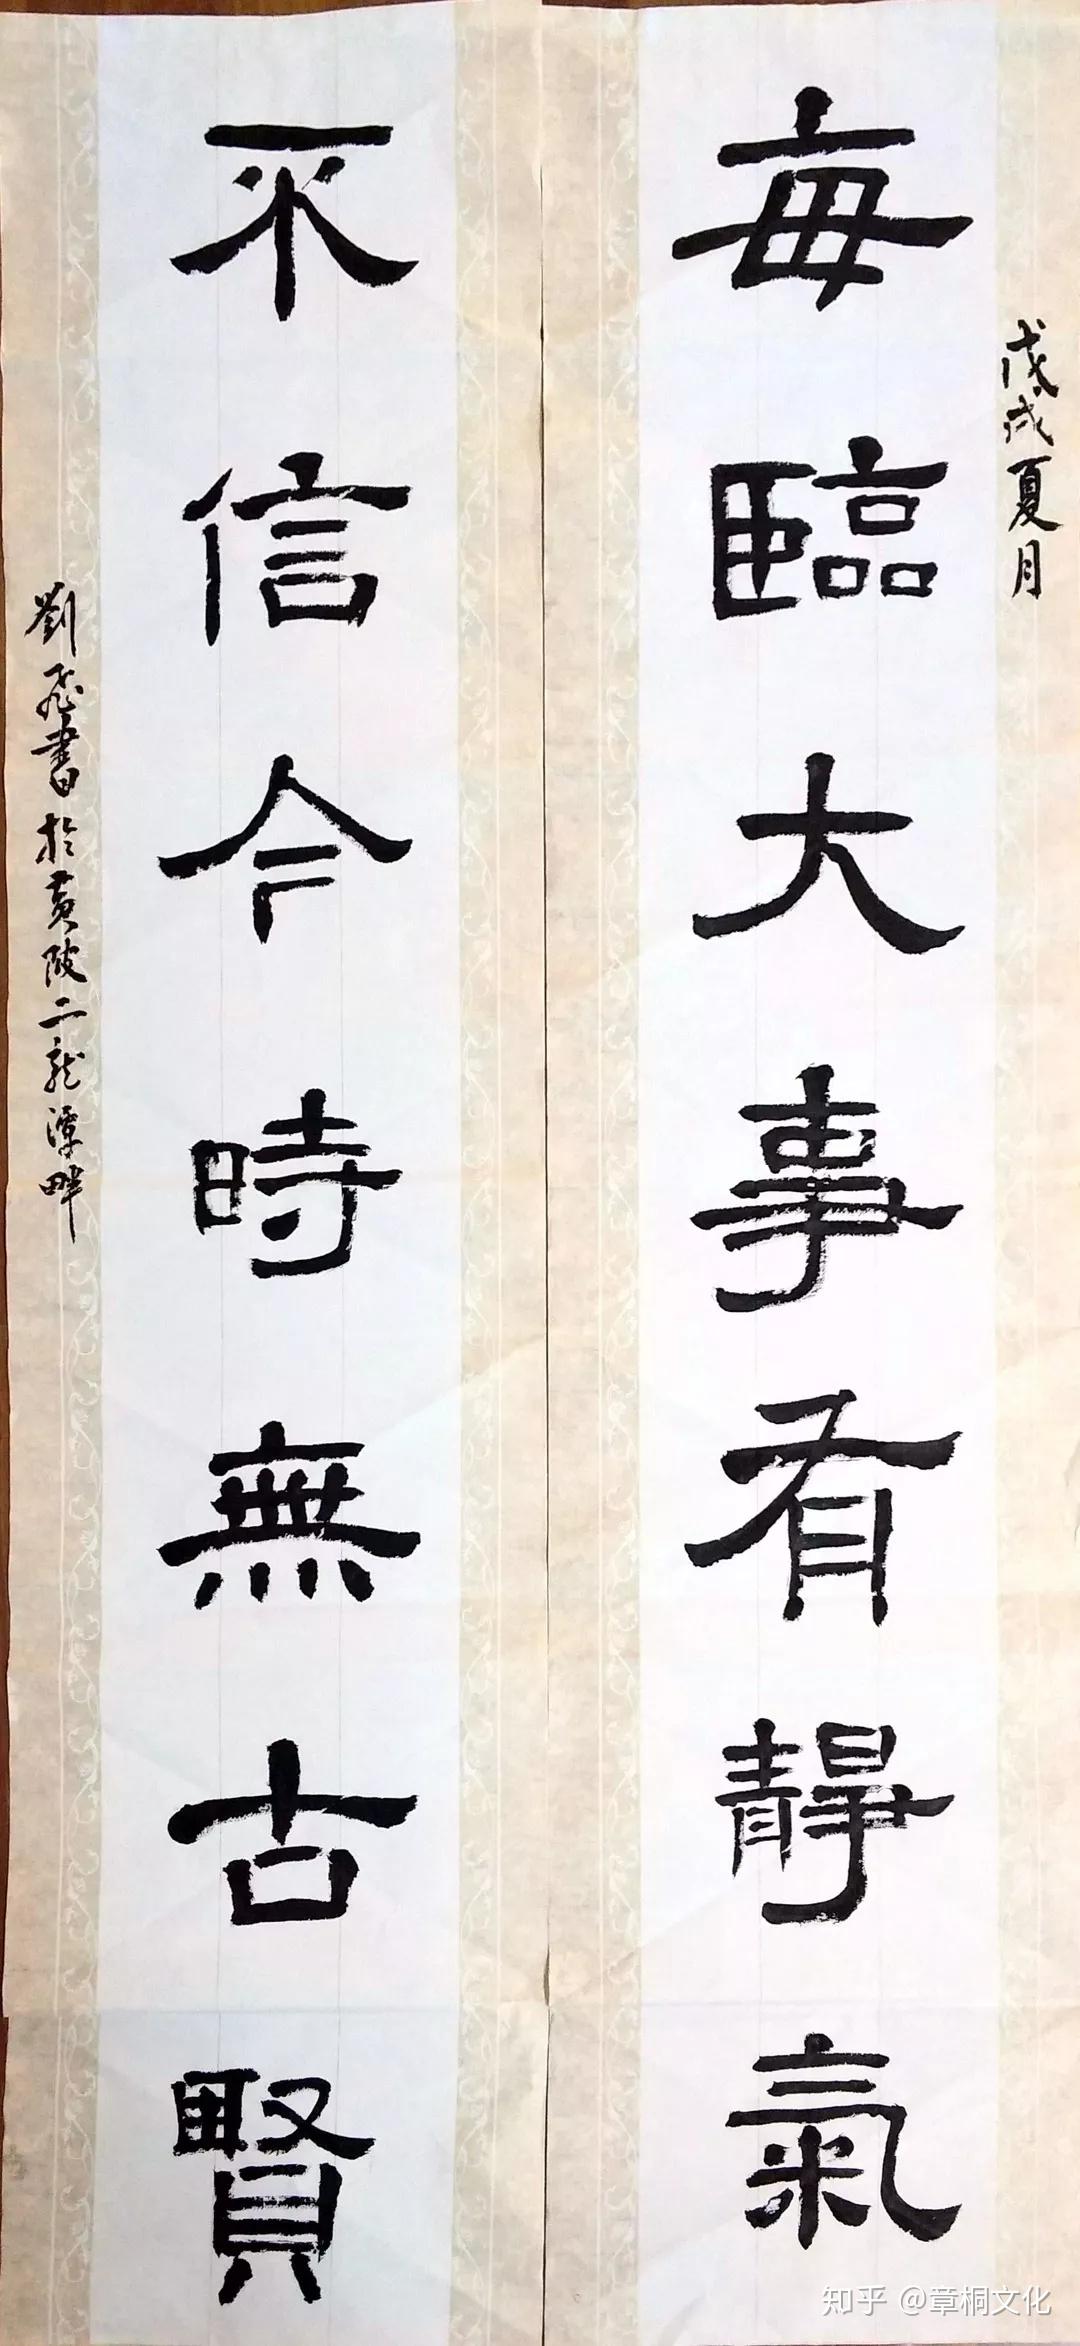 戊戌夏月
每臨大事有靜氣
不信今時無古賢
劉飛書於黃陂二龍潭畔
知乎 @章桐文化